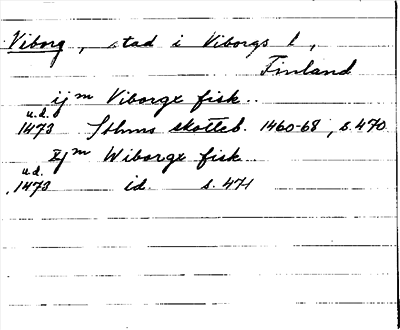 Viborg, stad i Viborgs l,
Finland
ijm Viborgx fisk..
u.d.
1473 Sthms skotteb. 1460-68, s. 470
xjm Wiborgx fisk..
u.d.
1473 id. s. 471